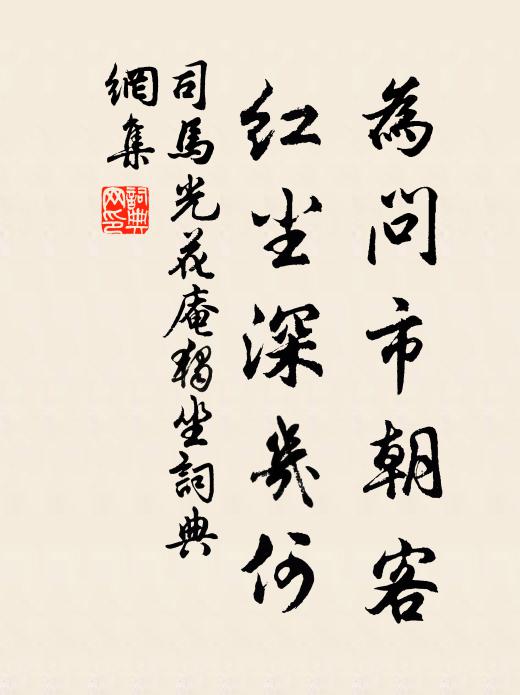 為問市朝客
红尘深幾何
司馬光花庵獨坐詞典
網集
詞典
网印